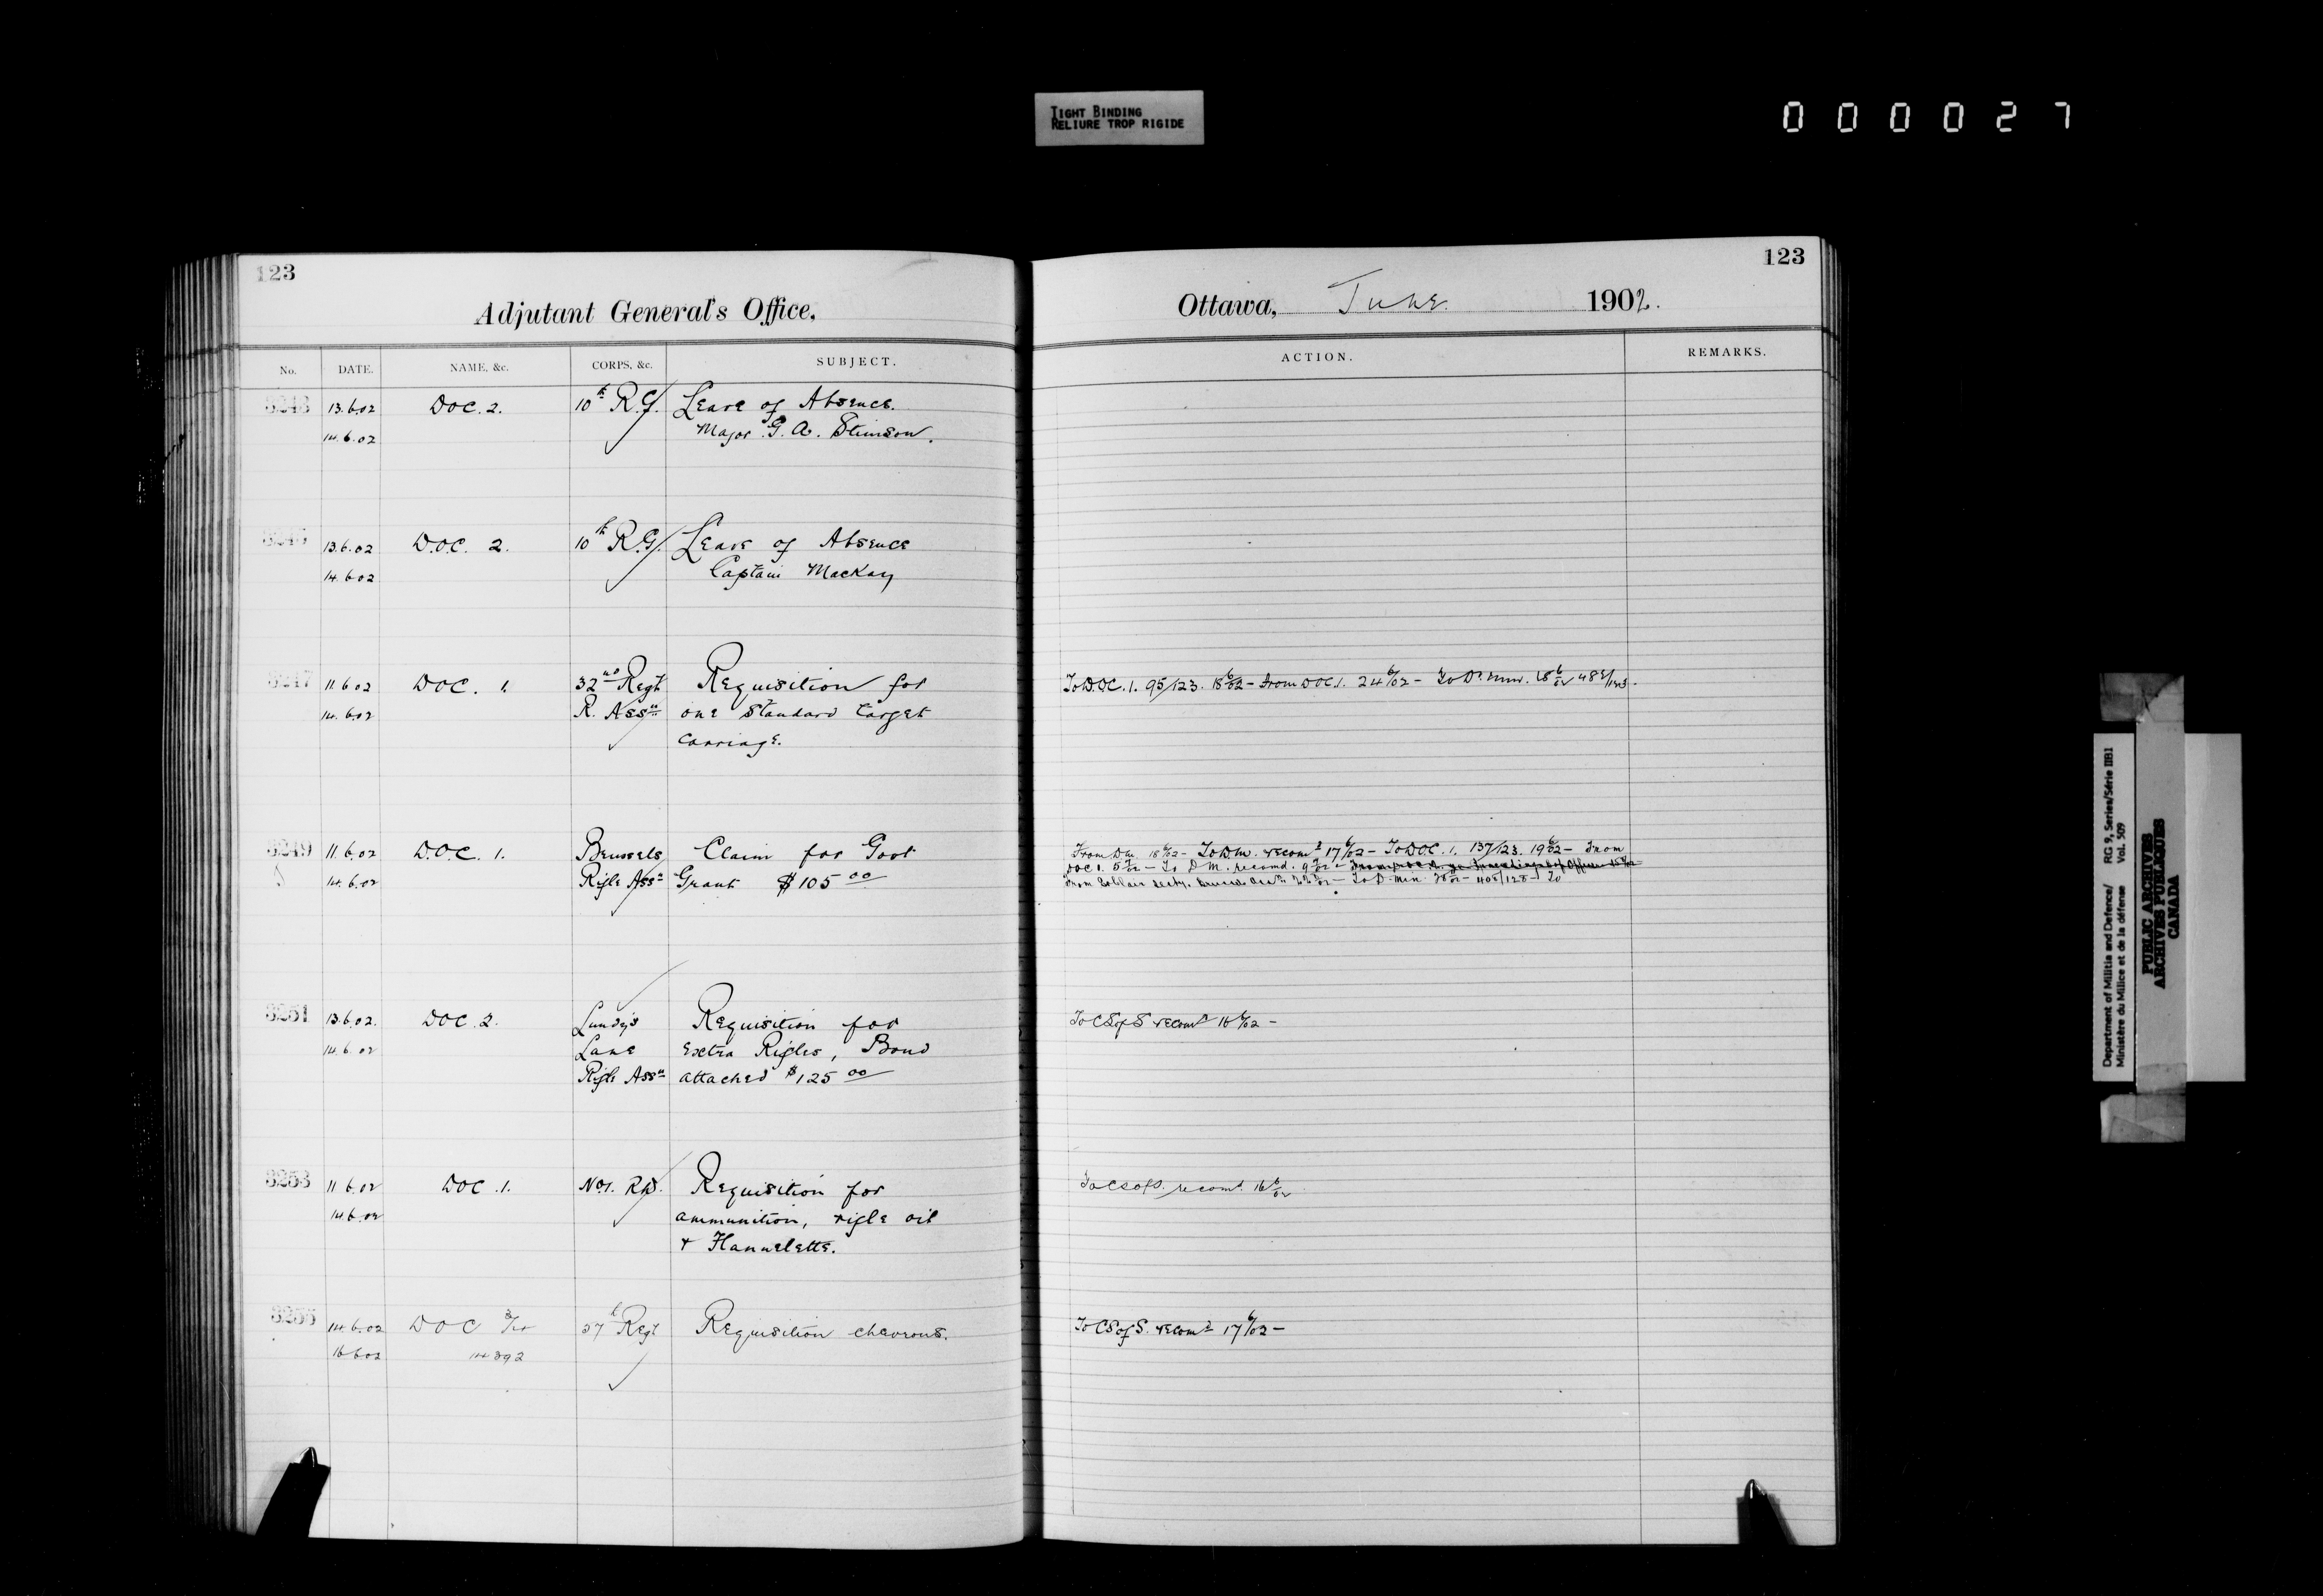 TIGHT BINDING
RELIURE TROP RIGIDE
000027
123
Adjutant General's Office,
No. DATE. NAME, &c. CORPS, &c. SUBJECT.
13.6.02 DOC. 2. 10th R.G. Leave of Absence.
14.6.02 Major G. A. Stimson.
13.6.02 D.O.C. 2. 10th R.G. Leave of Absence
14.6.02 Captain MacKay
3247 11.6.02 DOC. 1. 32nd Regt Requisition for
14.6.02 R. Assn one Standard Target
Carriage.
3249 11.6.02 D.O.C. 1. Brussels Claim for Govt
14.6.02 Rifle Assn Grant $105 00
3251 13.6.02. DOC. 2. Lundy's Requisition for
14.6.02 Lane Extra Rifles, Bond
Rifle Assn attached $125 00
3253 11.6.02 DOC. 1. No 1. R.D. Requisition for
14.6.02 ammunition, rifle oil
+ Flannelette.
3255 14.6.02 DOC 37th Regt Requisition chevrons.
16.6.02
123
Ottawa, June. 1902.
ACTION. REMARKS.
To D.O.C. 1. 95/123. 18 6/02 - From DOC. 1. 24 6/02 - To
From DM. 18 6/02 - To D.M. recomd 17 6/02 - To DOC. 1. 137/123. 19 6/02 - From
DOC 1. 5 7/02 - To D M. recomd. 9 7/02 -
To CS of S recomd 16 6/02 -
To CS of S. recomd. 16 6/02
To CS of S. recomd 17 6/02 -
Department of Militia and Defence/ RG 9, Series/Série IIB1
Ministère du Milice et de la défense Vol. 509
PUBLIC ARCHIVES
ARCHIVES PUBLIQUES
CANADA